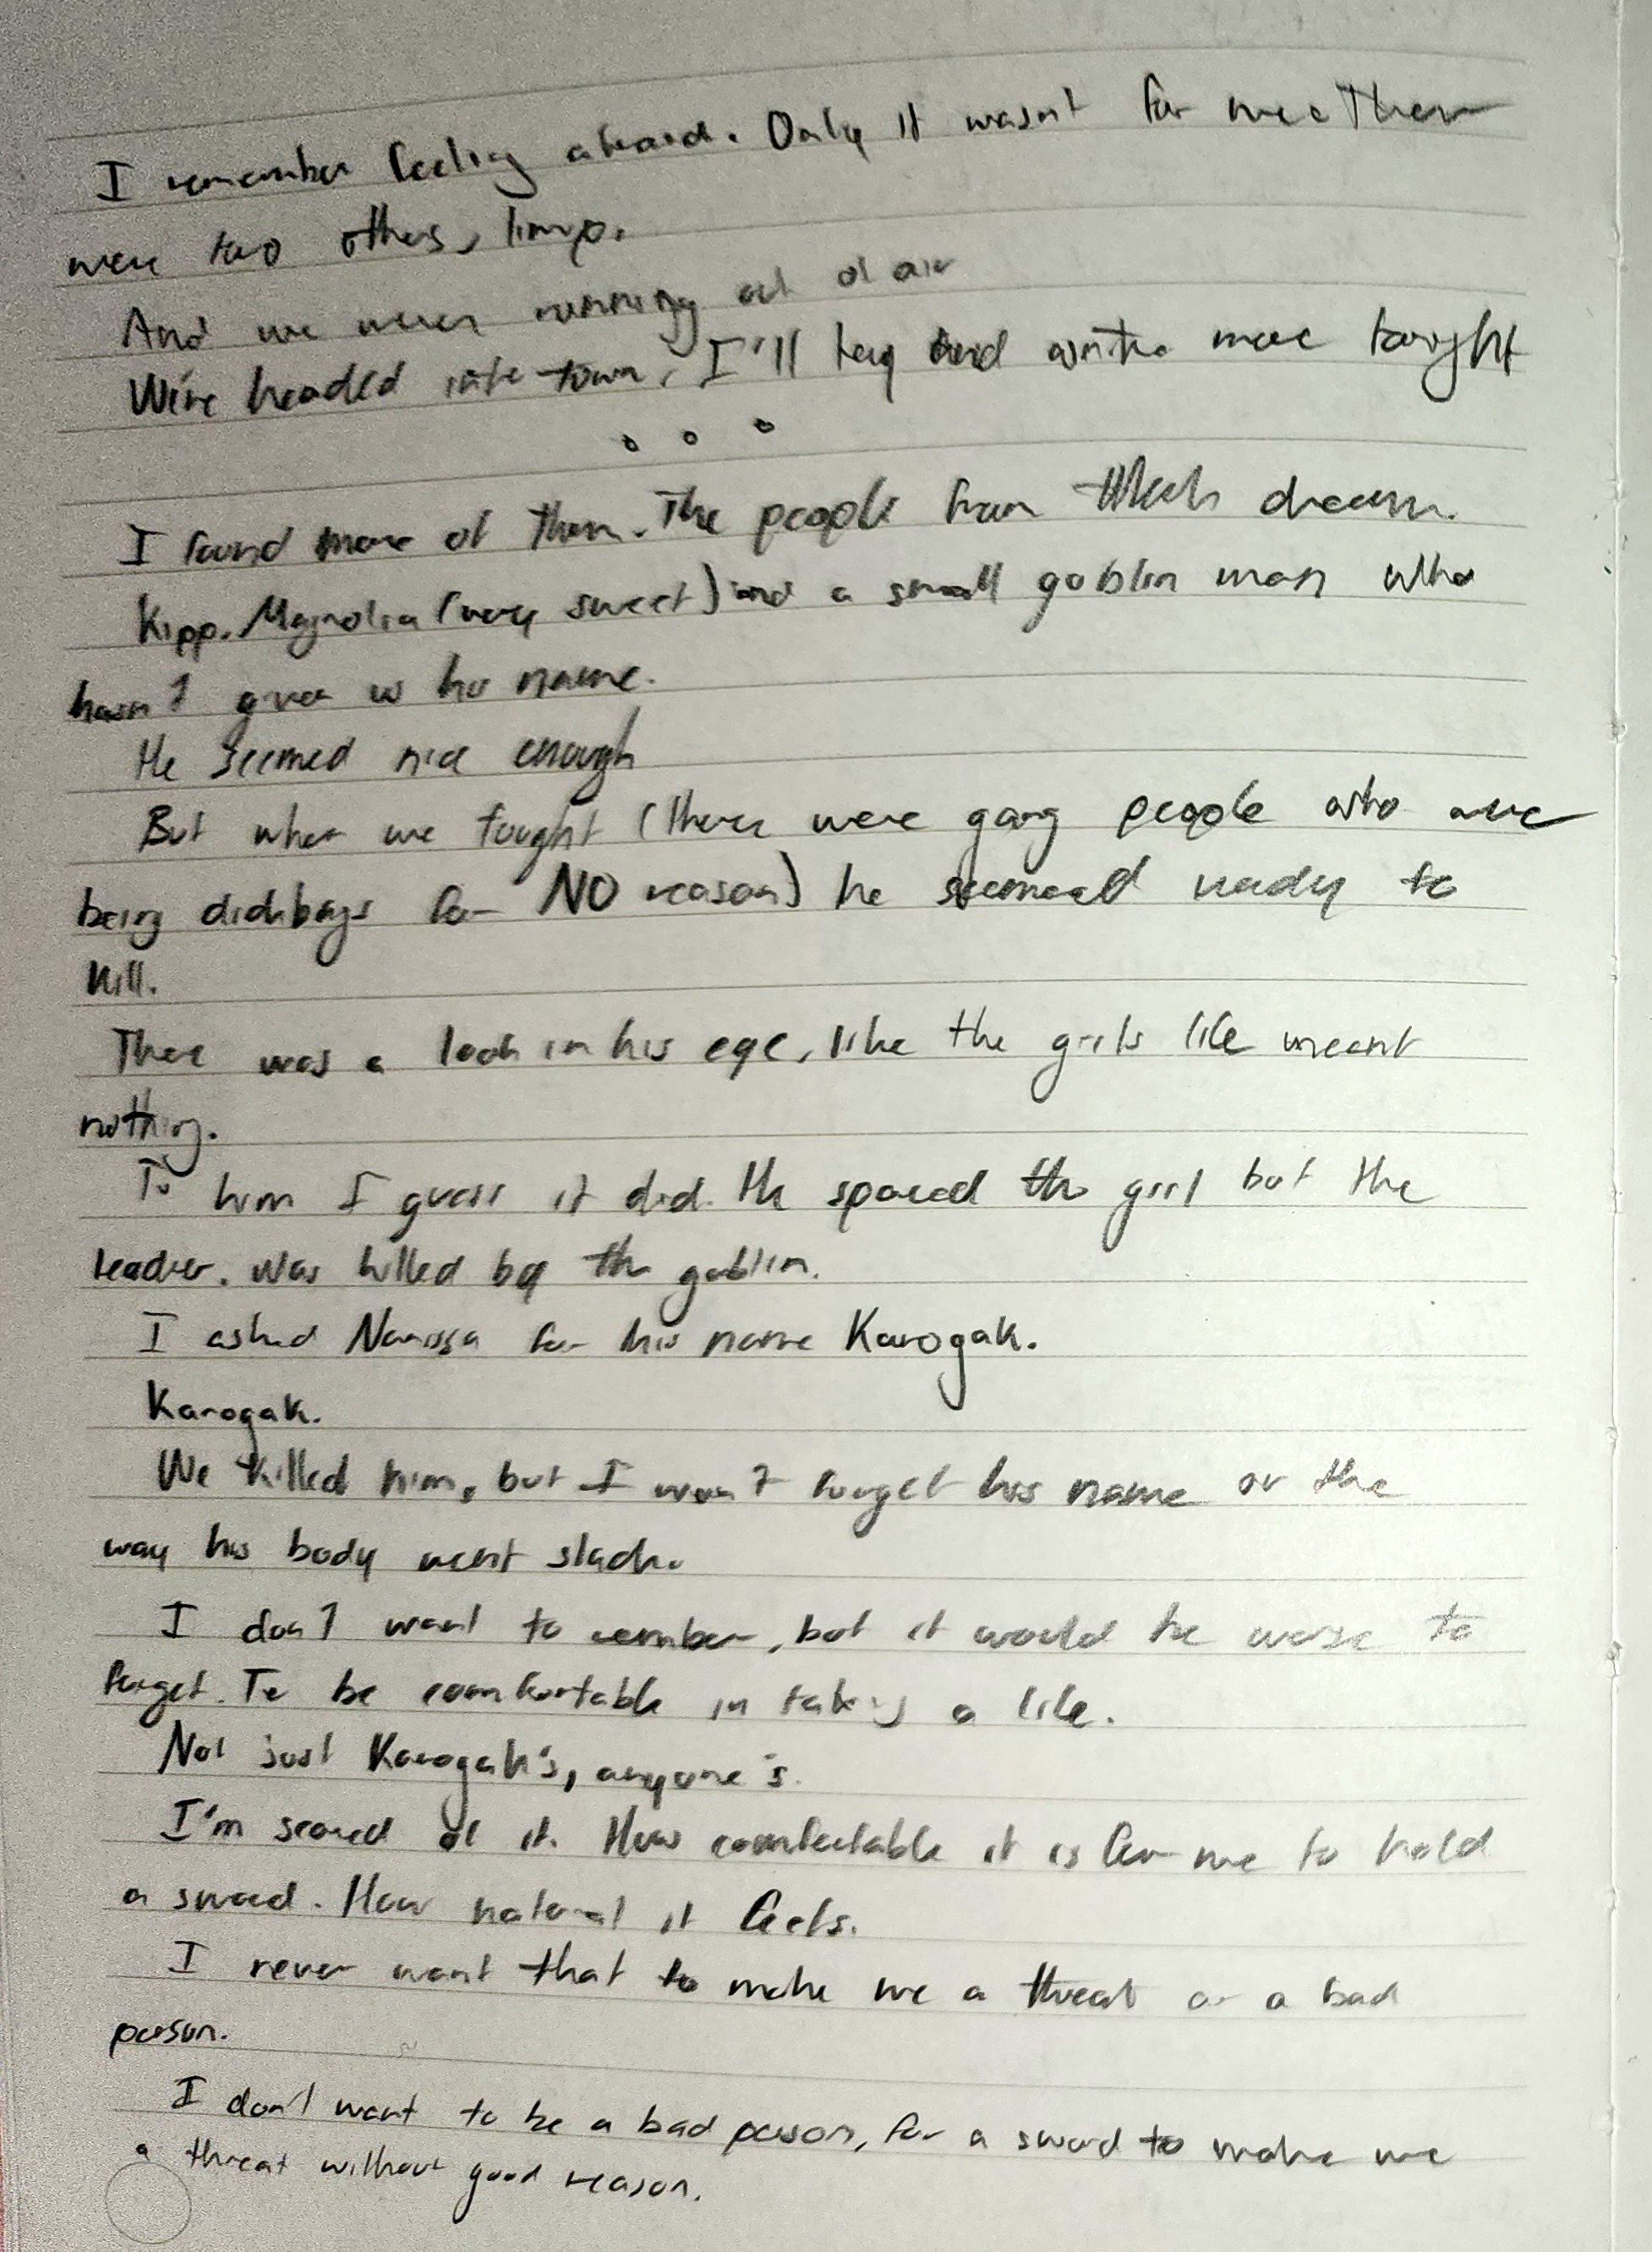 I remember feeling afraid. Only it wasn't for me. There
were two others, limp.
And we were running out of air
We're headed into town, I'll try and write more tonight
. . .
I found more of them. The people from the dream.
Kipp. Magnolia (very sweet) and a small goblin man who
hasn't given us his name.
He seemed nice enough
But when we fought (there were gang people who were
being dickbags for NO reason) he seemed ready to
kill.
There was a look in his eye, like the girls life meant
nothing.
To him I guess it did. He spared the girl but the
leader. Was killed by the goblin.
I asked Narissa for his name Karogak.
Karogak.
We killed him, but I won't forget his name or the
way his body went slack.
I don't want to rember, but it would be worse to
forget. To be comfortable in taking a life.
Not just Karogak's, anyone's.
I'm scared of it. How comfortable it is for me to hold
a sword. How natural it feels.
I never want that to make me a threat or a bad
person.
I don't want to be a bad person, for a sword to make me
a threat without good reason.